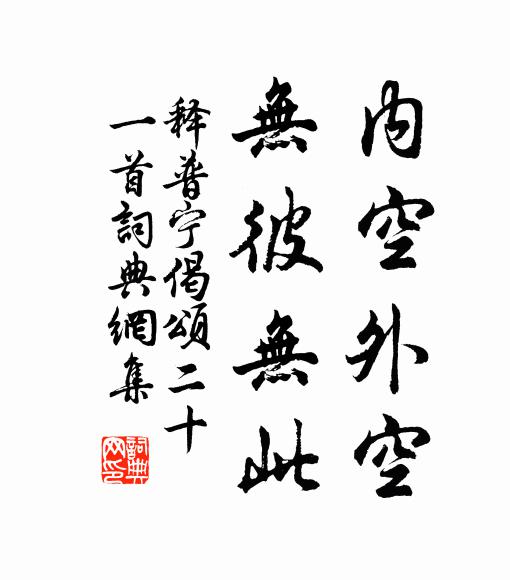 内空外空
無彼無此
释普宁偈頌二十
一首詞典網集
詞典網印